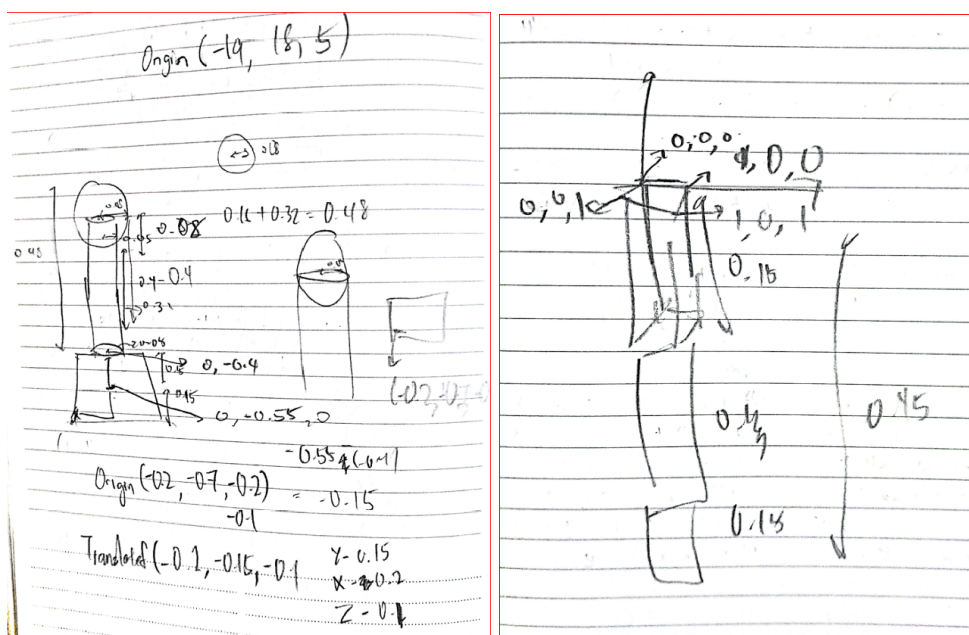 Origin (-19, 18, 5)
0.18
0.16 + 0.32 = 0.48
0.08
0.05
0.48
0.4 - 0.4
0.32
0, -0.4
0.15
0.15
0, -0.55, 0
Origin (-0.2, -0.7, -0.2)
= -0.15
-0.1
Translated (-0.1, -0.15, -0.1
Y - 0.15
X - 0.2
Z - 0.1
0, 0, 0
1, 0, 0
0, 0, 1
1, 0, 1
0.15
0.45
0.15